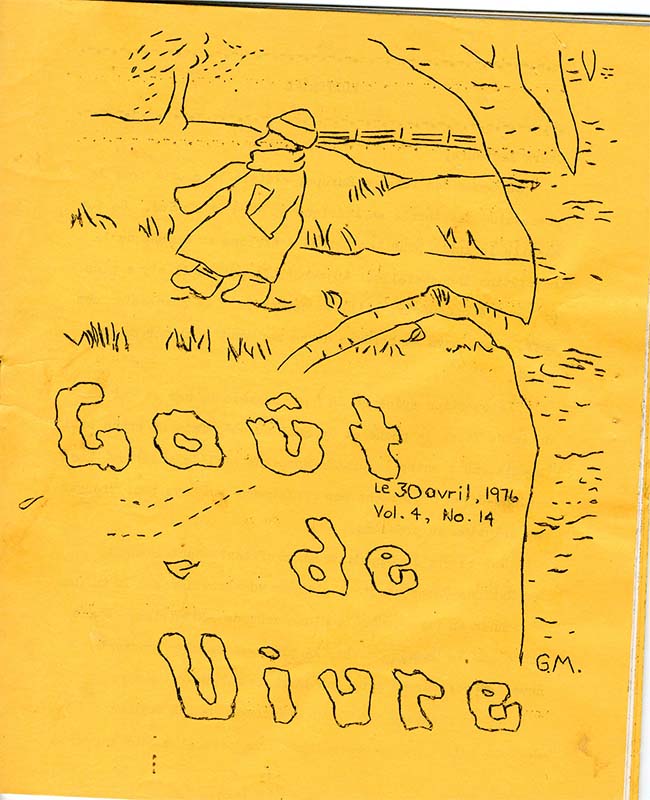 Goût
Le 30 avril, 1976
Vol. 4, No. 14
de
G.M.
Vivre